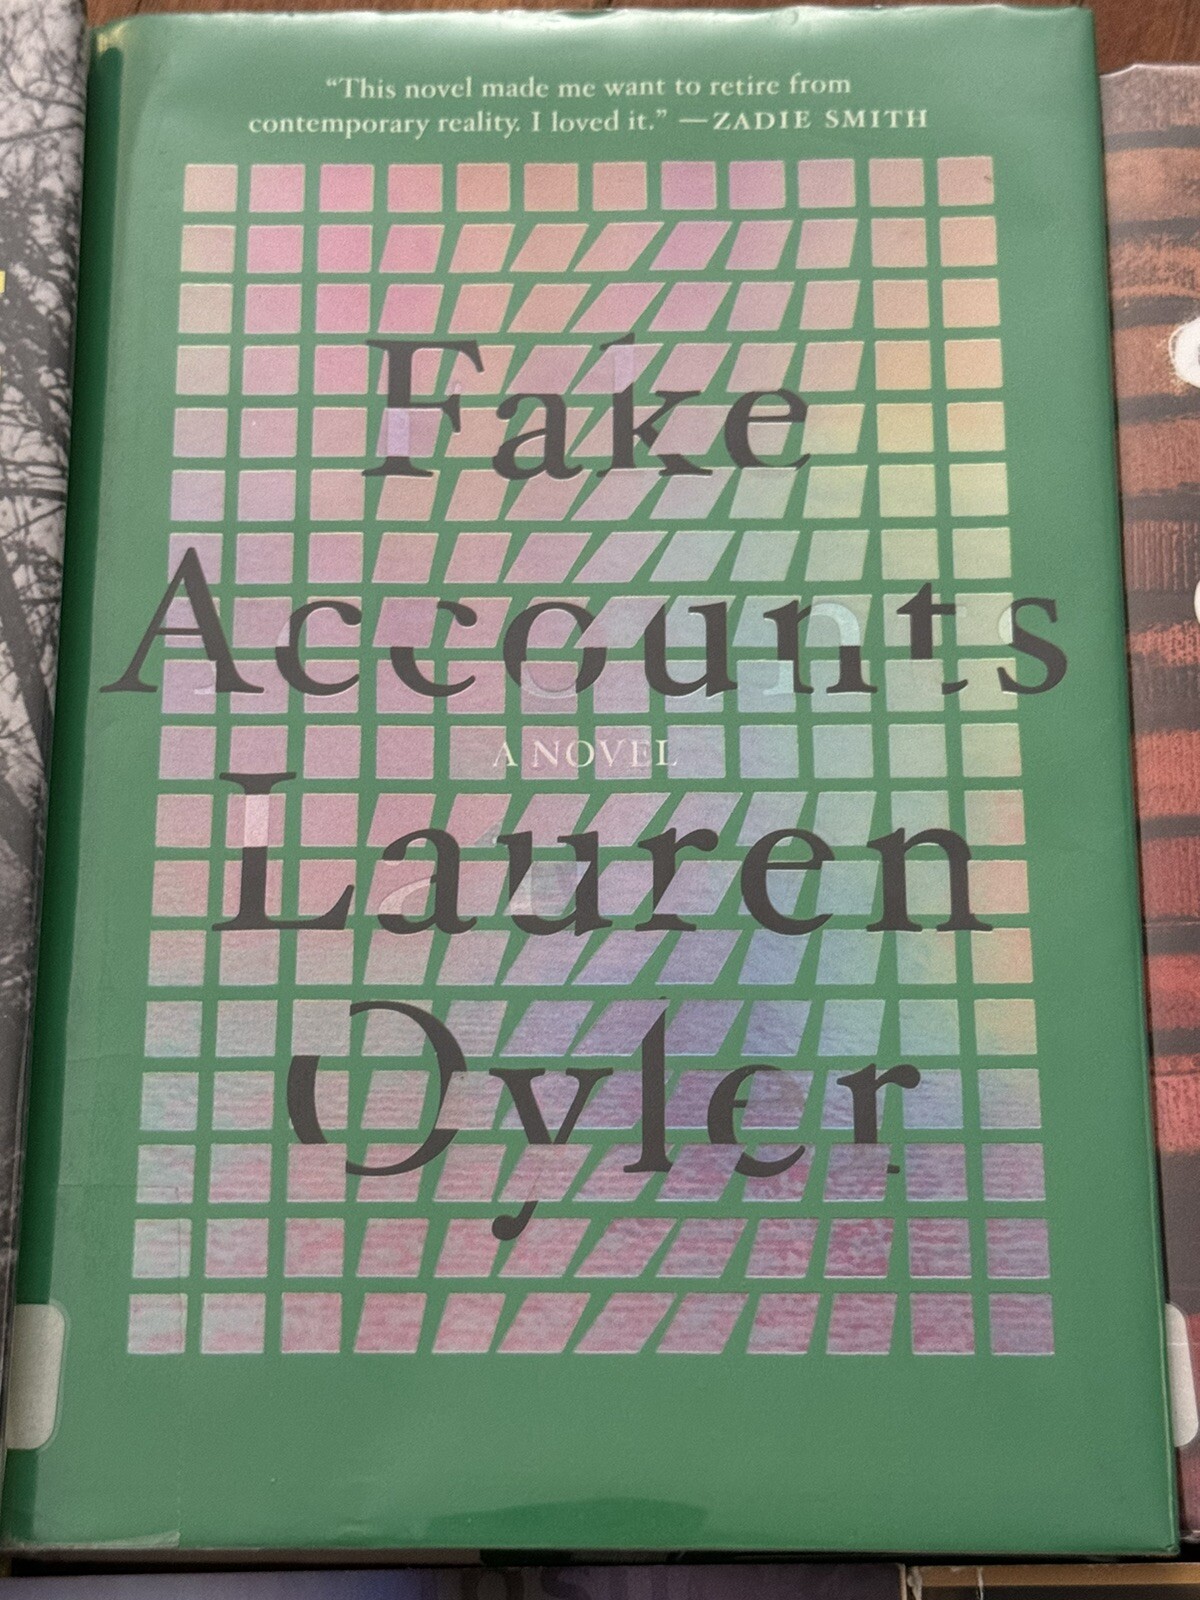 “This novel made me want to retire from
contemporary reality. I loved it.” —ZADIE SMITH
Fake
Accounts
A NOVEL
Lauren
Oyler